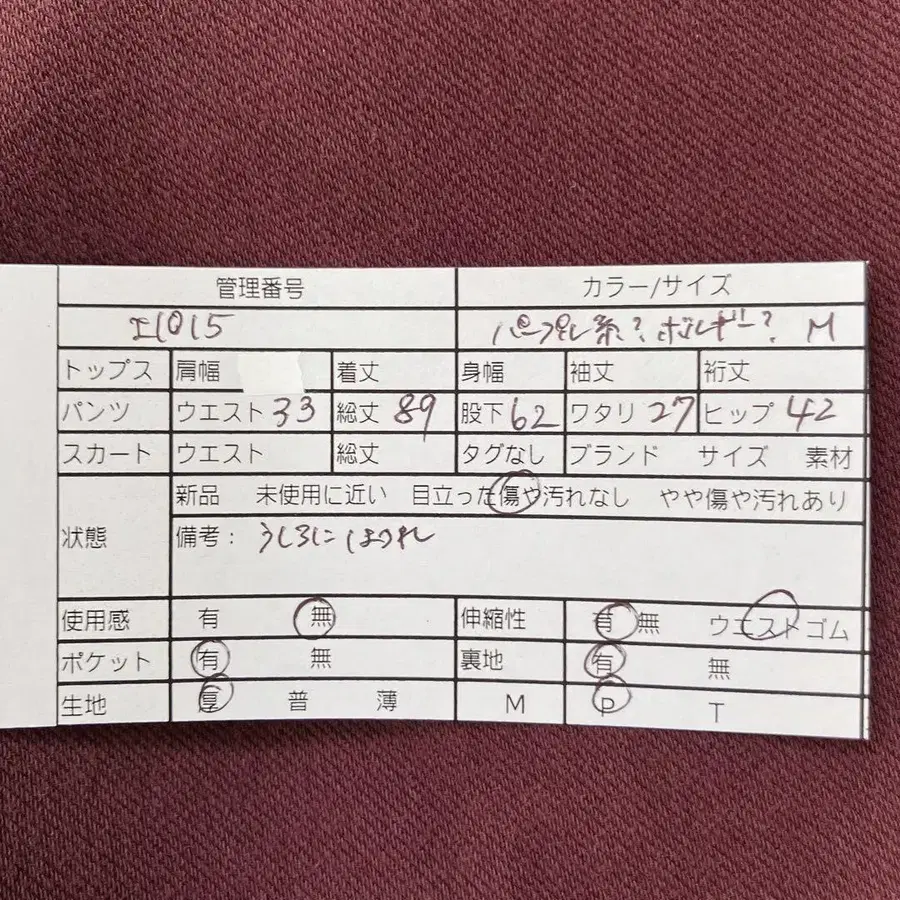 管理番号 カラー/サイズ
I1015 パープル系?ボルドー? M
トップス 肩幅 着丈 身幅 袖丈 裄丈
パンツ ウエスト 33 総丈 89 股下 62 ワタリ 27 ヒップ 42
スカート ウエスト 総丈 タグなし ブランド サイズ 素材
新品 未使用に近い 目立った傷や汚れなし やや傷や汚れあり
状態 備考: うしろにほつれ
使用感 有 無 伸縮性 有 無 ウエストゴム
ポケット 有 無 裏地 有 無
生地 厚 普 薄 M P T